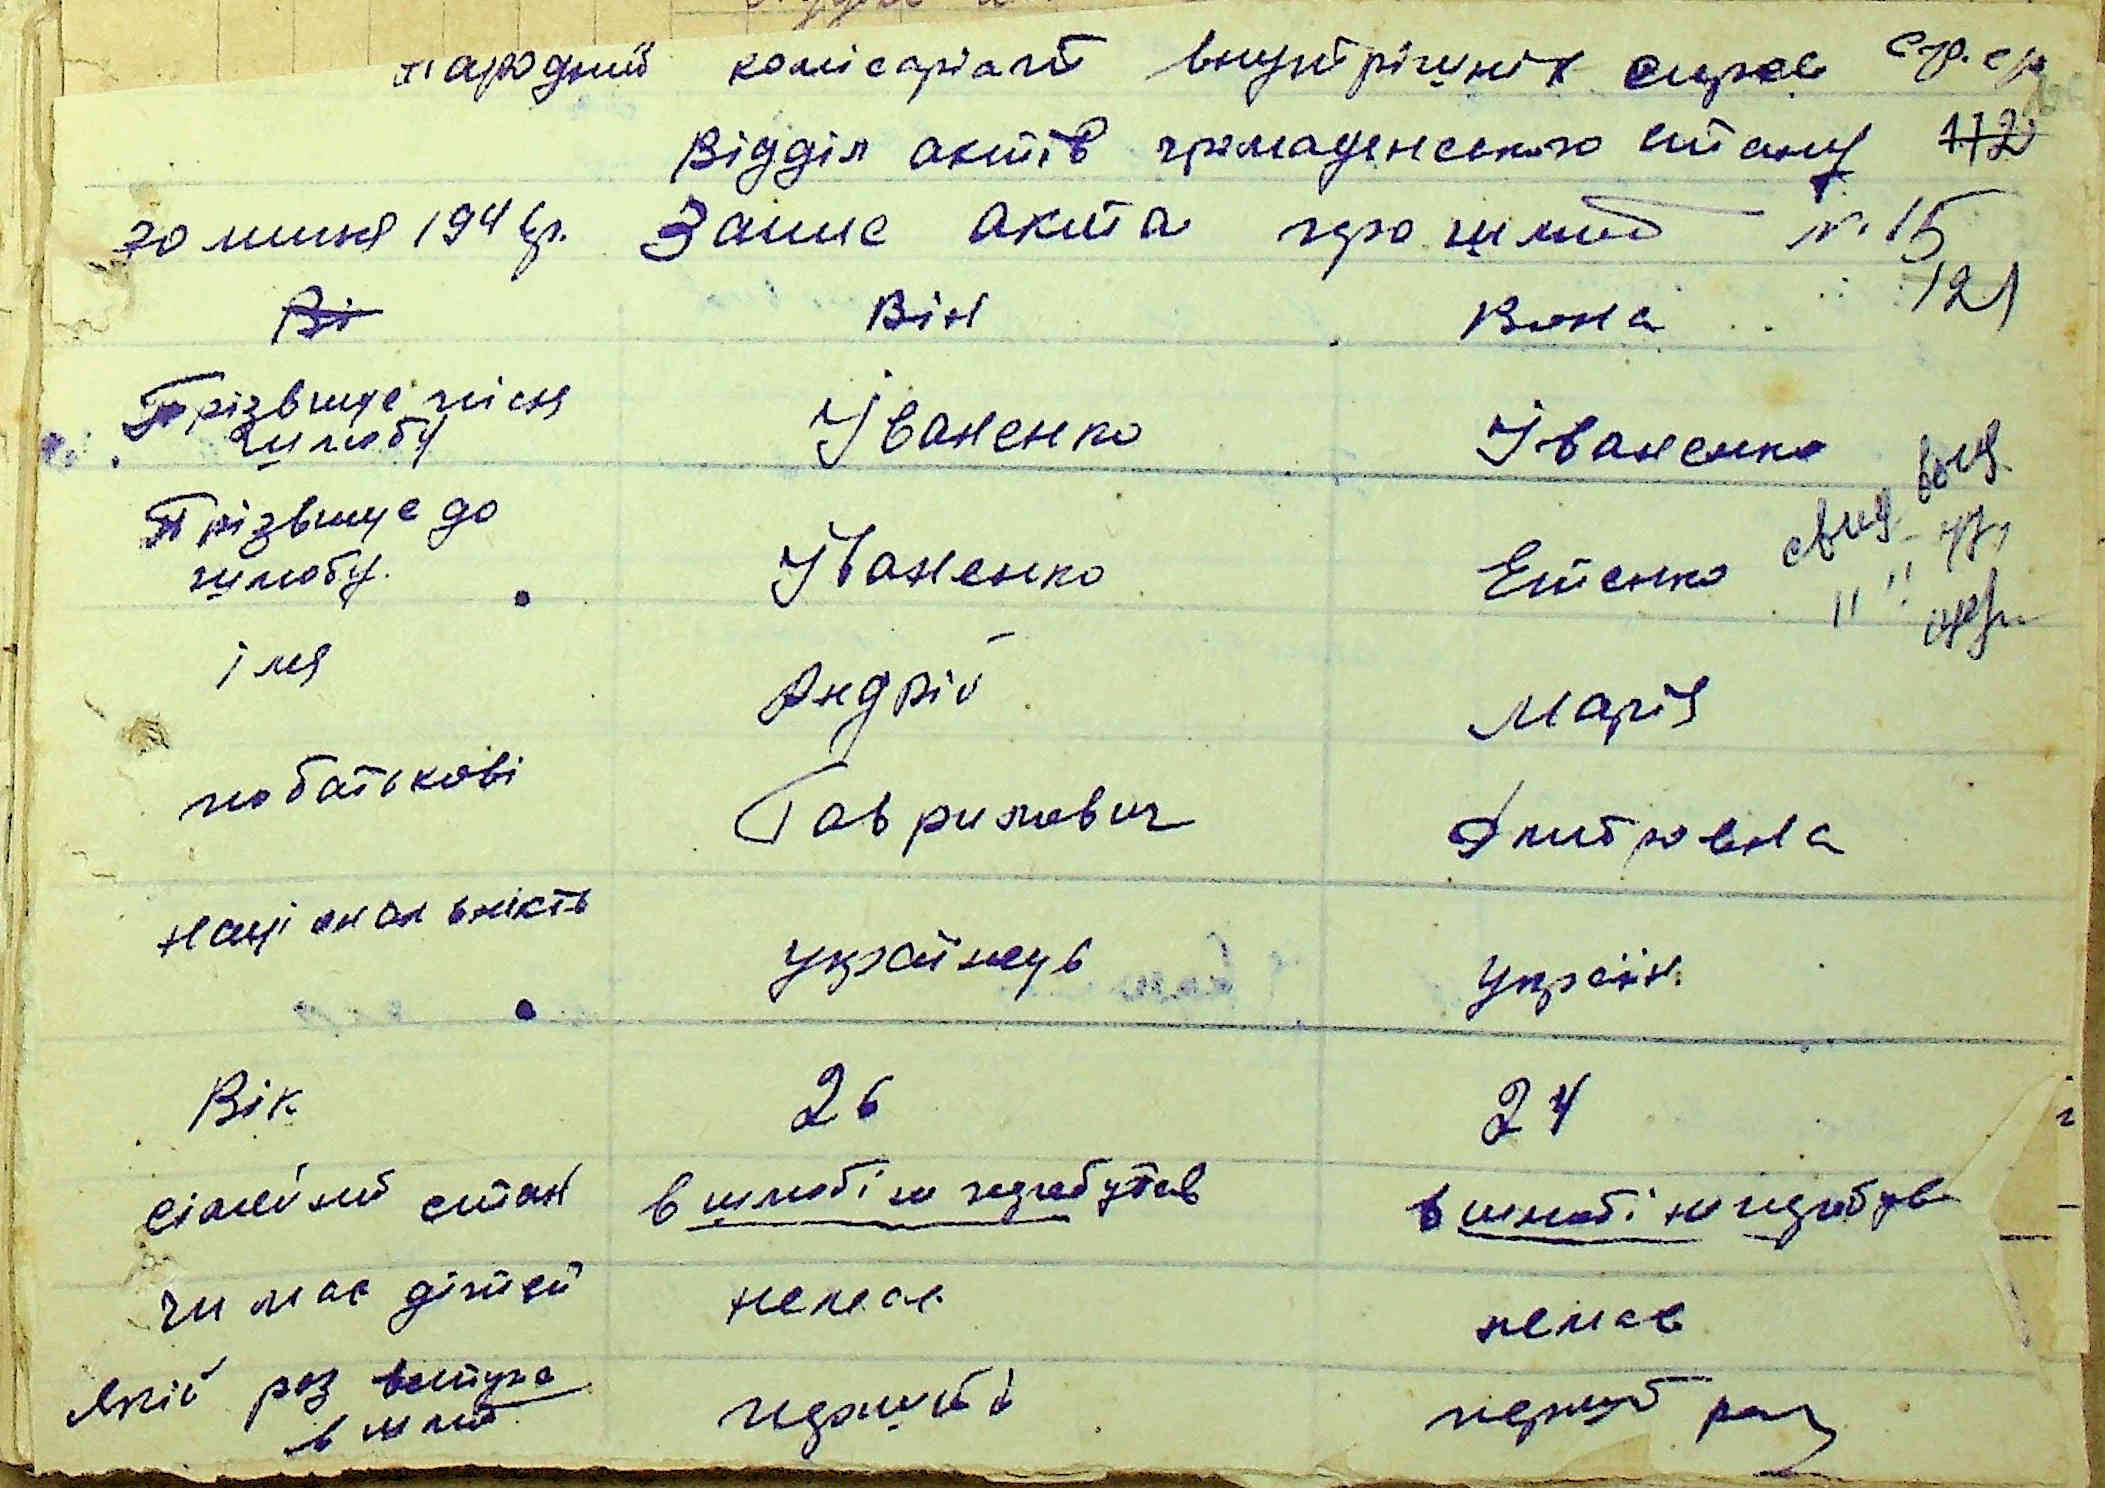 Народний комісаріат внутрішніх справ
Відділ актів громаденського стану 112
30 липня 194 р. Запис акта про шлюб № 15
121
Ві Він Вона
Прізвище після шлюбу Іваненко Іваненко
Прізвище до шлюбу. Іваненко
імя Андрій Марія
побатькові Гаврилович Дмитровна
національність українець україн.
Вік 26 24
сімейний стан в шлюбі не перебував в шлюбі не перебув
чи має дітей немає немає
Якій раз вступає в шлюб перший перший раз